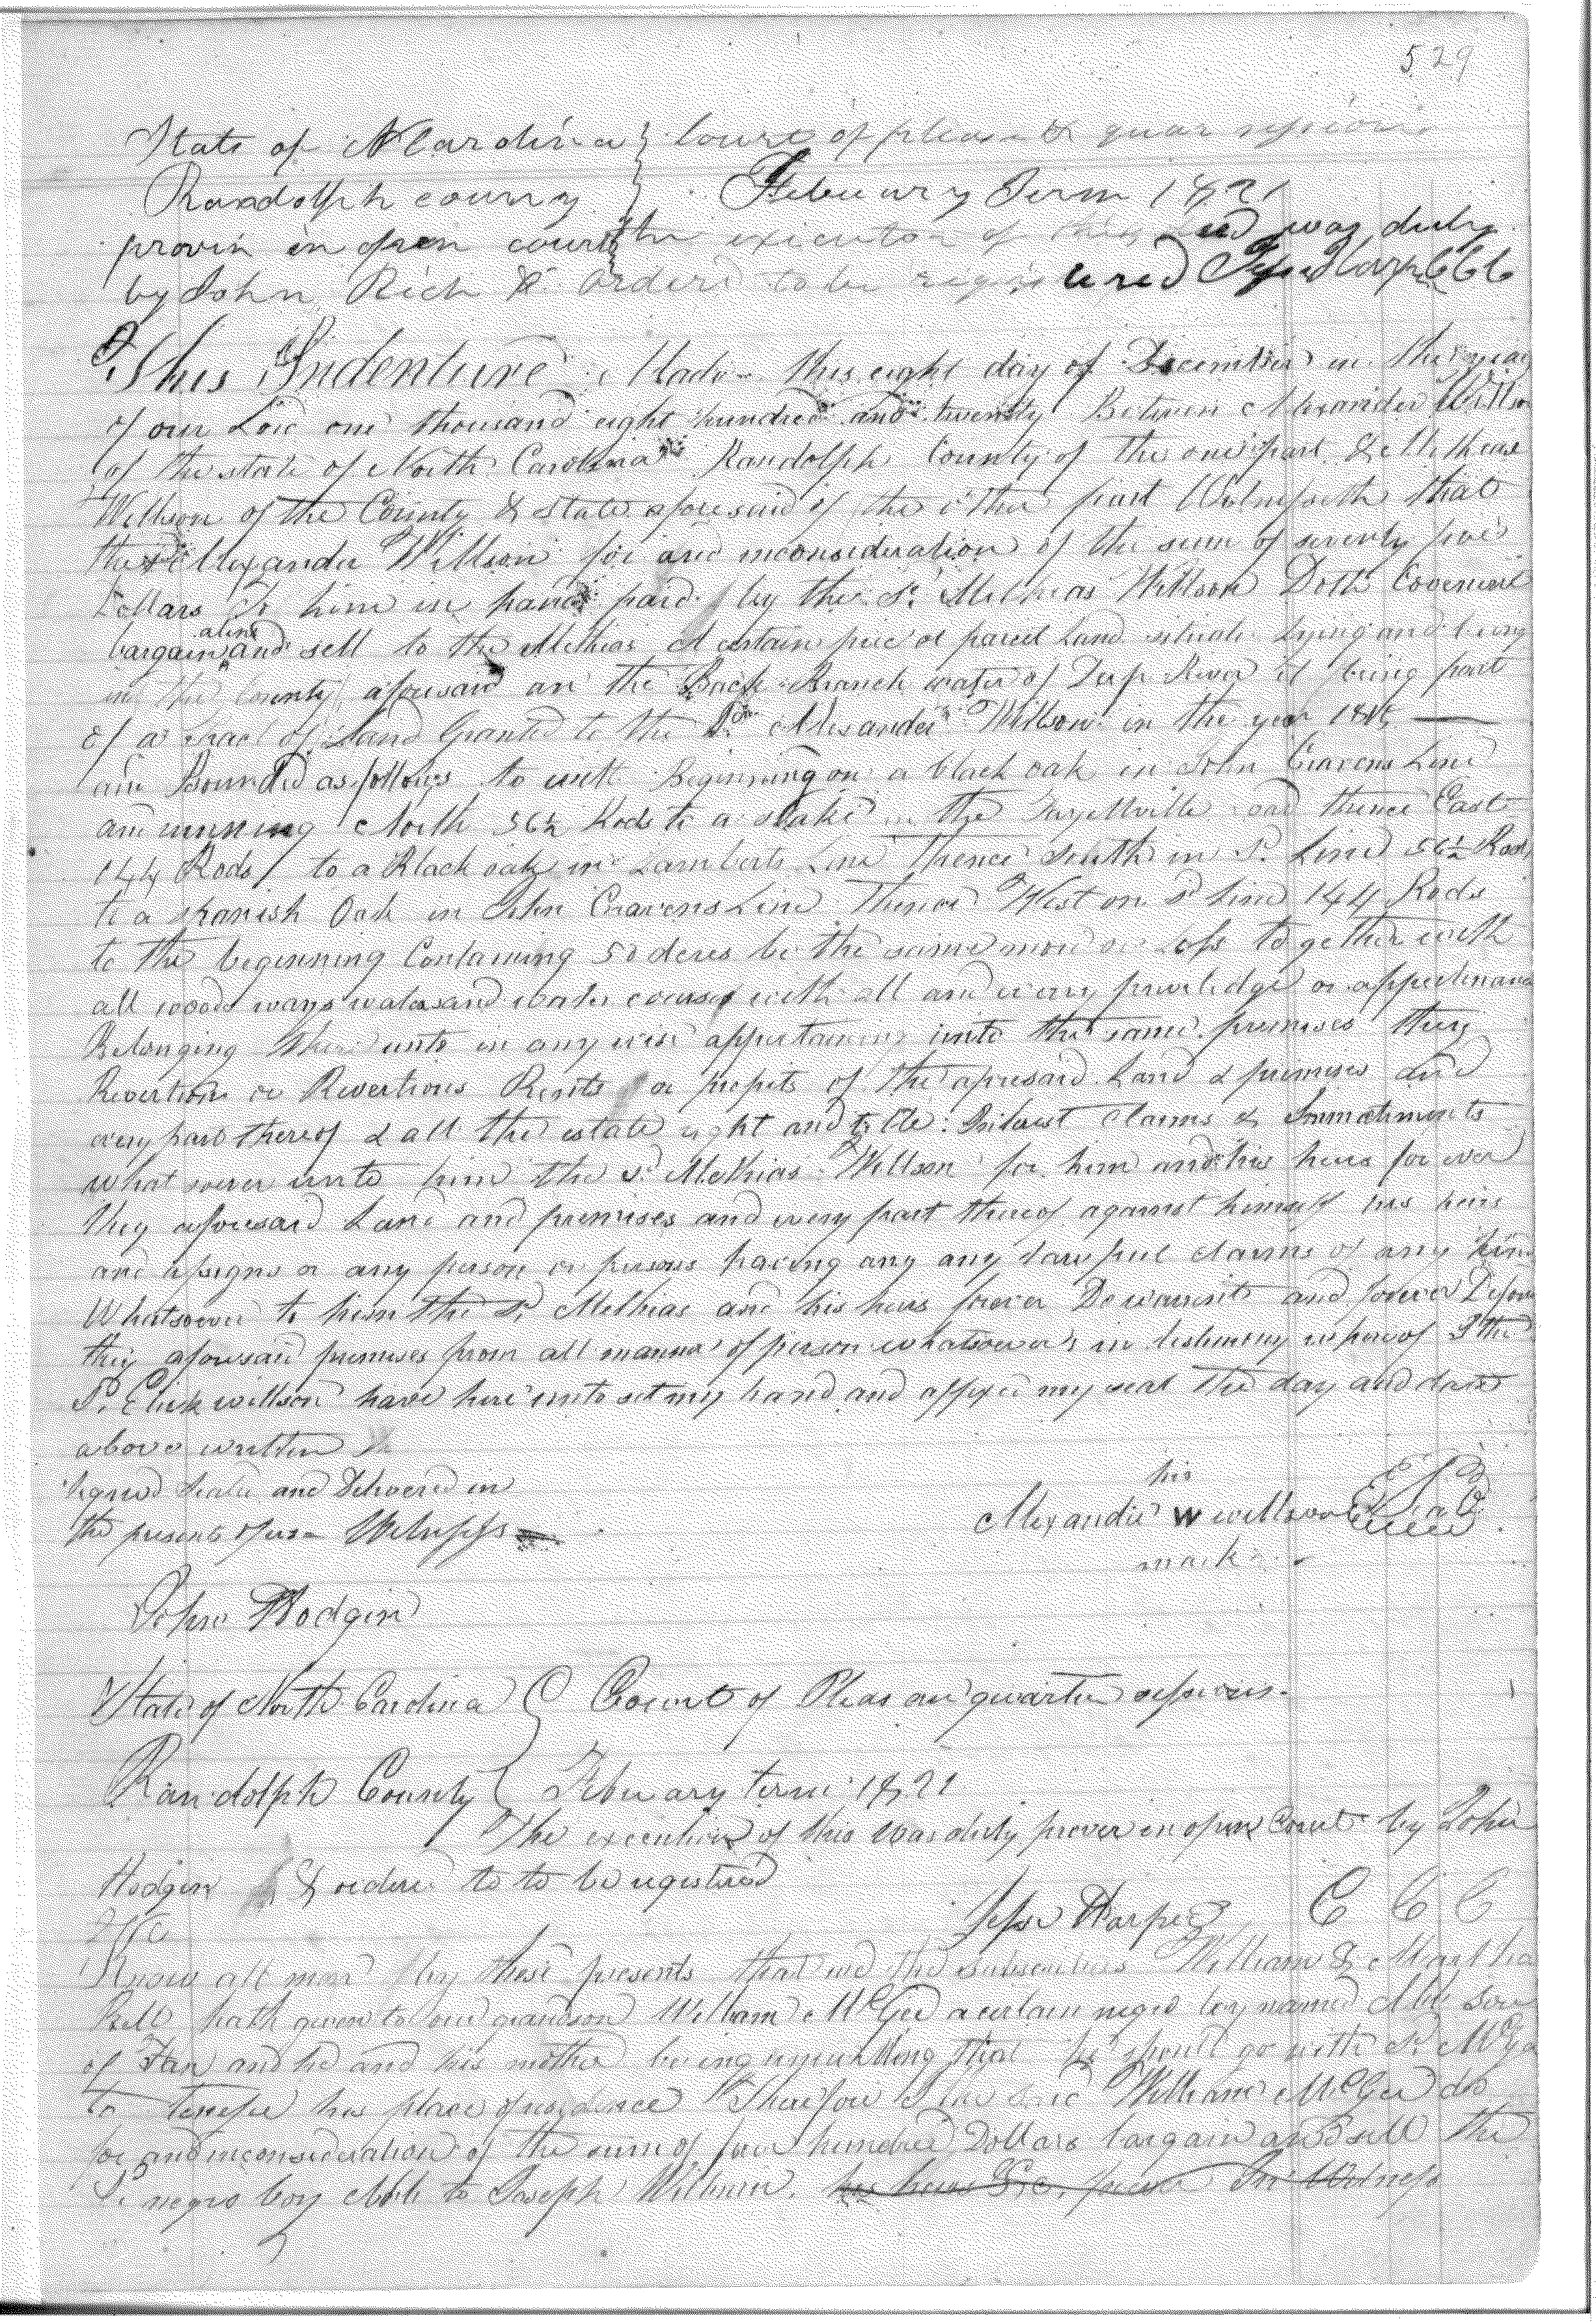 529
State of N Carolina } Court of pleas & quar sessions
Randolph county } Febuary Term 1821
provin in open court the execution of this deed was duly
by John Rich & orderd to be registered Jesse Harper CCC
This Indenture Made this eight day of December in the year
of our Lord one thousand eight hundred and twenty Between Alexander Willson
of the state of North Carolina Randolph County of the one part & Methias
Willson of the County & state aforesaid of the other part Witnesseth that
the sd Alexander Willson for and inconsideration of the sum of seventy five
Dollars To him in hand paid by the sd. Methias Willson Doth Covenant
bargain aline and sell to the Methias A certain piece or parcel Land situate Lying and being
in the County aforesaid on the Back Branch water of Deep River it being part
of a tract of Land Granted to the sd. Alexander Willson in the year
and Bounded as follows to with Beginning on a black oak in John Cravens Line
and running North 56½ Rods to a stake in the Fayettville road thence East
144 Rods to a Black oak in Lamberts Line thence South in sd. Line 56½ Rods
to a spanish Oak in John Cravens Line Thence West on sd Line 144 Rods
to the beginning Containing 50 acres be the same more or Less together with
all woods ways waters and water courses with all and every priviledge or appertinance
Belonging there unto in any wise appertaining unto the same premises they
Revertion or Revertions Rents or profits of the aforesaid Land & premises and
every part thereof & all the estate right and title Intrust claims &
what soever unto him the sd. Methias Willson for him and his heirs for ever
they aforesaid Land and premises and every part thereof against himself his heirs
and assigns or any person or persons having any any lawfull claims of any kind
Whatsoever to him the sd. Methias and his heirs forever Do warrant and forever Defend
they aforesaid premises from all mannar of person whatsoever in testimony whereof I the
Sd. Elick willson have hereunto set my hand and affixed my seal the day and date
above written
Signed seald and Delivered in
the presents of us Witnesss
his
Alexander W willson Seal
mark
John Hodgin
State of North Carolina } Court of Pleas an quarter sessions
Randolph County } Febuary term 1821
The execution of this was duly prover in open Court by John
Hodgin & orderd to to be registered
Jesse Harper CCC
Know all men by these presents that we the subscribers William & Martha
Bell hath given to our grandson William McGee a certain negro boy named Abb son
of Fan and he and his mother being unwilling that he should go with sd. McGee
to his place of residence Therefore I the said William McGee do
for and inconsideration of the sum of four hundred Dollars bargain and sell the
Sd. negro boy Abb to Joseph Wilburn, his heirs &c. forever In Witness